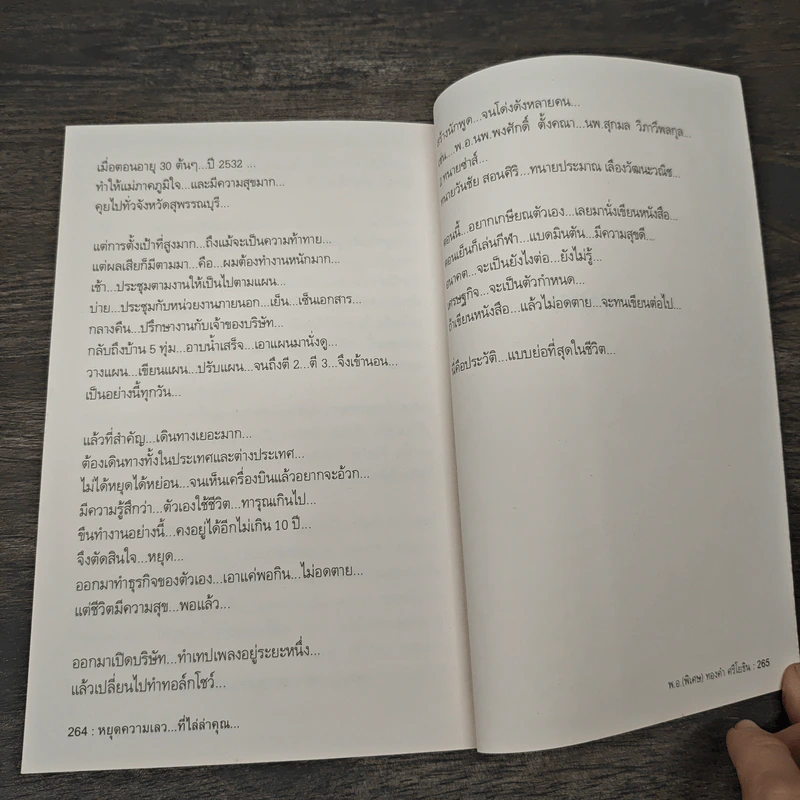 เมื่อตอนอายุ 30 ต้นๆ...ปี 2532 ...
ทำให้แม่ภาคภูมิใจ...และมีความสุขมาก...
คุยไปทั่วจังหวัดสุพรรณบุรี...
แต่การตั้งเป้าที่สูงมาก...ถึงแม้จะเป็นความท้าทาย...
แต่ผลเสียก็มีตามมา...คือ...ผมต้องทำงานหนักมาก...
เช้า...ประชุมตามงานให้เป็นไปตามแผน...
บ่าย...ประชุมกับหน่วยงานภายนอก...เย็น...เซ็นเอกสาร...
กลางคืน...ปรึกษางานกับเจ้าของบริษัท...
กลับถึงบ้าน 5 ทุ่ม...อาบน้ำเสร็จ...เอาแผนมานั่งดู...
วางแผน...เขียนแผน...ปรับแผน...จนถึงตี 2...ตี 3...จึงเข้านอน...
เป็นอย่างนี้ทุกวัน...
แล้วที่สำคัญ...เดินทางเยอะมาก...
ต้องเดินทางทั้งในประเทศและต่างประเทศ...
ไม่ได้หยุดได้หย่อน...จนเห็นเครื่องบินแล้วอยากจะอ้วก...
มีความรู้สึกว่า...ตัวเองใช้ชีวิต...ทารุณเกินไป...
ขืนทำงานอย่างนี้...คงอยู่ได้อีกไม่เกิน 10 ปี...
จึงตัดสินใจ...หยุด...
ออกมาทำธุรกิจของตัวเอง...เอาแค่พอกิน...ไม่อดตาย...
แต่ชีวิตมีความสุข...พอแล้ว...
ออกมาเปิดบริษัท...ทำเทปเพลงอยู่ระยะหนึ่ง...
แล้วเปลี่ยนไปทำทอล์กโชว์...
264 : หยุดความเลว...ที่ไล่ล่าคุณ...
สร้างนักพูด...จนโด่งดังหลายคน...
เช่น...พ.อ.นพ.พงศักดิ์ ตั้งคณา...นพ.สุกมล วิภาวีพลกุล...
ทนายซ่าส์...
ทนายวันชัย สอนศิริ...ทนายประมาณ เลืองวัฒนะวณิช...
ตอนนี้...อยากเกษียณตัวเอง...เลยมานั่งเขียนหนังสือ...
ตอนเย็นก็เล่นกีฬา...แบดมินตัน...มีความสุขดี...
อนาคต...จะเป็นยังไงต่อ...ยังไม่รู้...
เศรษฐกิจ...จะเป็นตัวกำหนด...
ถ้าเขียนหนังสือ...แล้วไม่อดตาย...จะทนเขียนต่อไป...
นี่คือประวัติ...แบบย่อที่สุดในชีวิต...
พ.อ.(พิเศษ) ทองคำ ศรีโยธิน : 265